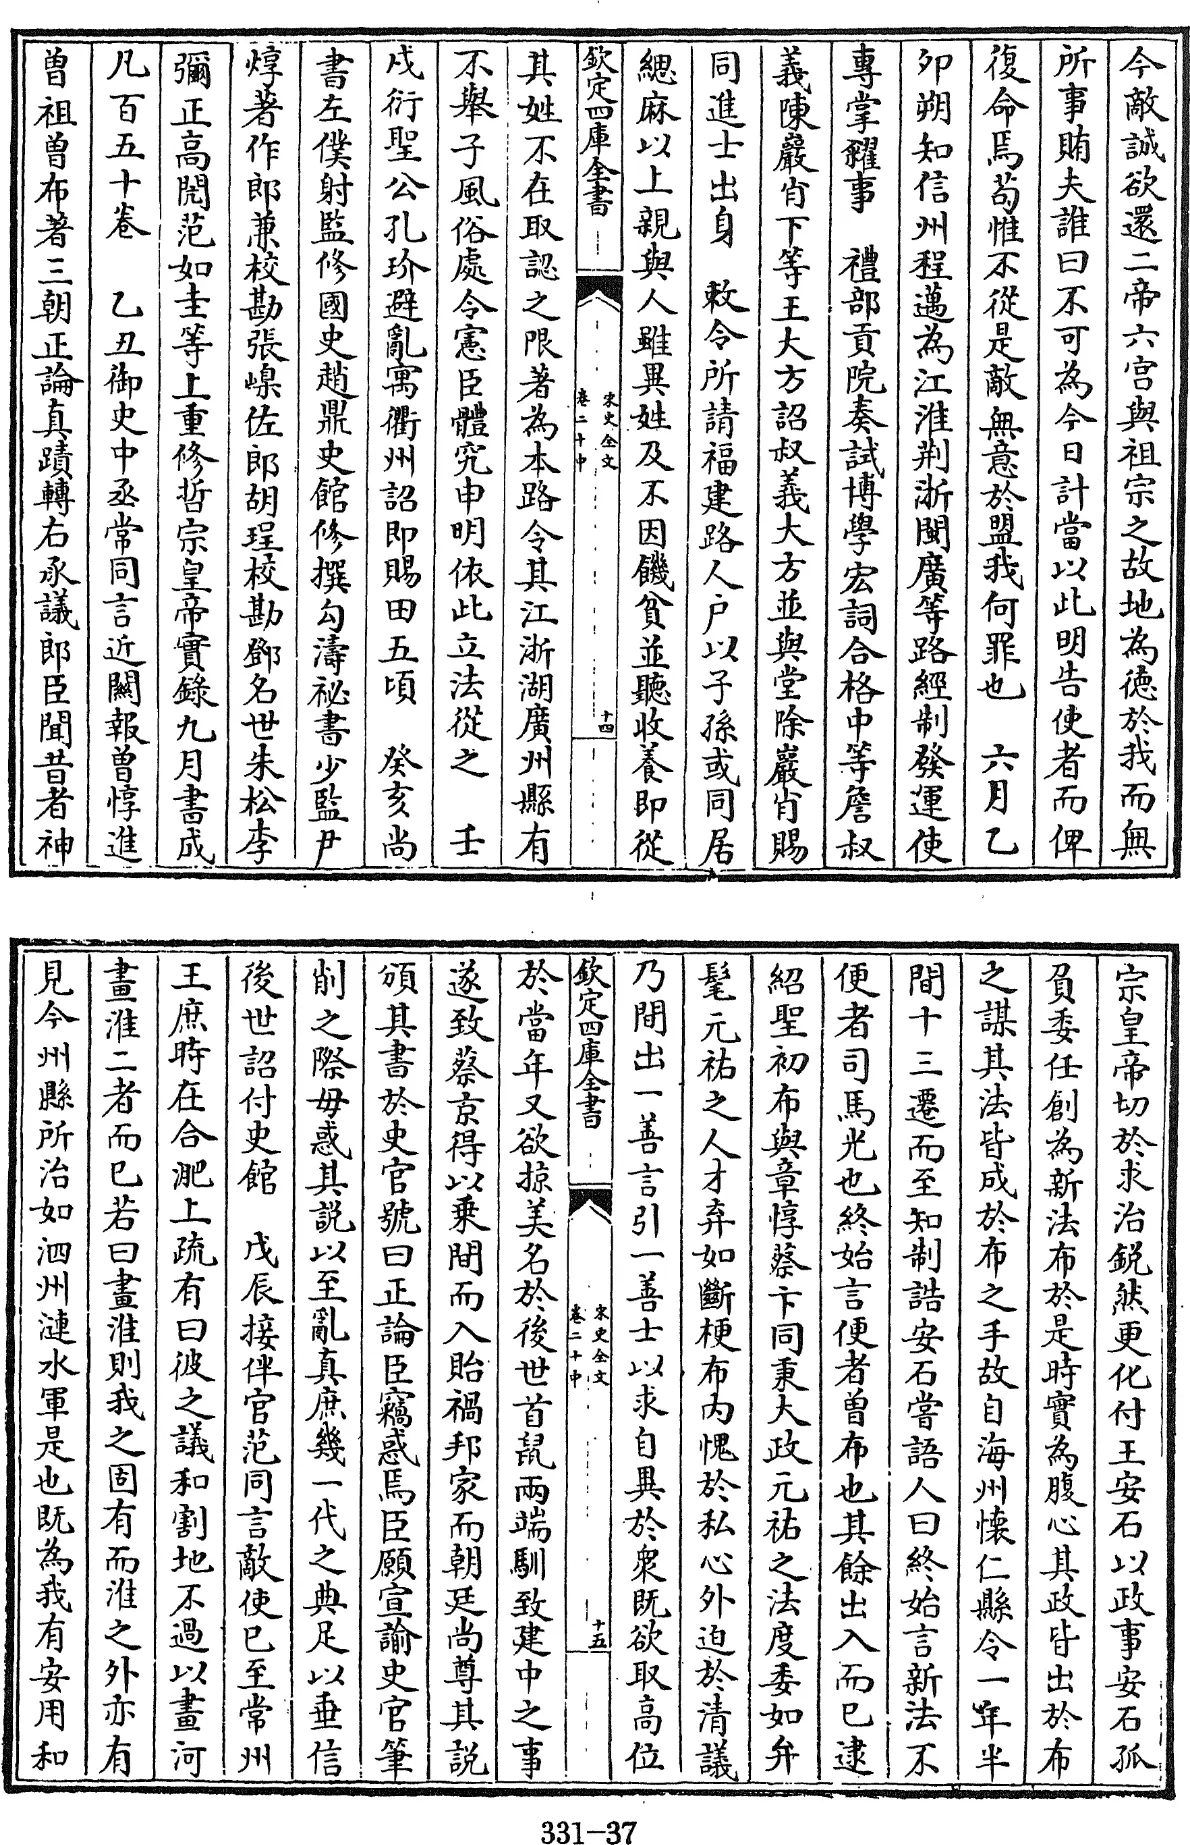 今敵誠欲還二帝六宫與祖宗之故地為徳於我而無
所事賄夫誰曰不可為今日計當以此明告使者而俾
復命焉茍惟不從是敵無意於盟我何罪也　六月乙
夘朔知信州程邁為江淮荆浙閩廣等路經制發運使
專掌糴事　禮部貢院奏試博學宏詞合格中等詹叔
義陳巖肖下等王大方詔叔義大方並與堂除巖肖賜
同進士出身　敕令所請福建路人户以子孫或同居
緦麻以上親與人雖異姓及不因饑貧並聽收養即從
欽定四庫全書
宋史全文
卷二十中
十四
其姓不在取認之限著為本路令其江浙湖廣州縣有
不舉子風俗處令憲臣體究申明依此立法從之　壬
戌衍聖公孔玠避亂寓衢州詔即賜田五頃　癸亥尚
書左僕射監修國史趙鼎史館修撰勾濤祕書少監尹
焞著作郎兼校勘張嵲佐郎胡珵校勘鄧名世朱松李
彌正高閌范如圭等上重修哲宗皇帝實錄九月書成
凡百五十卷　乙丑御史中丞常同言近闕報曽惇進
曽祖曽布著三朝正論真蹟轉右承議郎臣聞昔者神
宗皇帝切於求治鋭然更化付王安石以政事安石孤
負委任創為新法布於是時實為腹心其政皆出於布
之謀其法皆成於布之手故自海州懐仁縣令一年半
間十三遷而至知制誥安石嘗語人曰終始言新法不
便者司馬光也終始言便者曽布也其餘出入而已逮
紹聖初布與章惇蔡卞同秉大政元祐之法度委如弁
髦元祐之人才弃如斷梗布内愧於私心外迫於清議
乃間出一善言引一善士以求自異於衆既欲取高位
欽定四庫全書
宋史全文
卷二十中
十五
於當年又欲掠美名於後世首鼠兩端馴致建中之事
遂致蔡京得以乗間而入貽禍邦家而朝廷尚尊其説
頒其書於史官號曰正論臣竊惑焉臣願宣諭史官筆
削之際毋惑其説以至亂真庶幾一代之典足以垂信
後世詔付史館　戊辰接伴官范同言敵使已至常州
王庶時在合淝上疏有曰彼之議和割地不過以畫河
畫淮二者而已若曰畫淮則我之固有而淮之外亦有
見今州縣所治如泗州漣水軍是也既為我有安用和
331-37